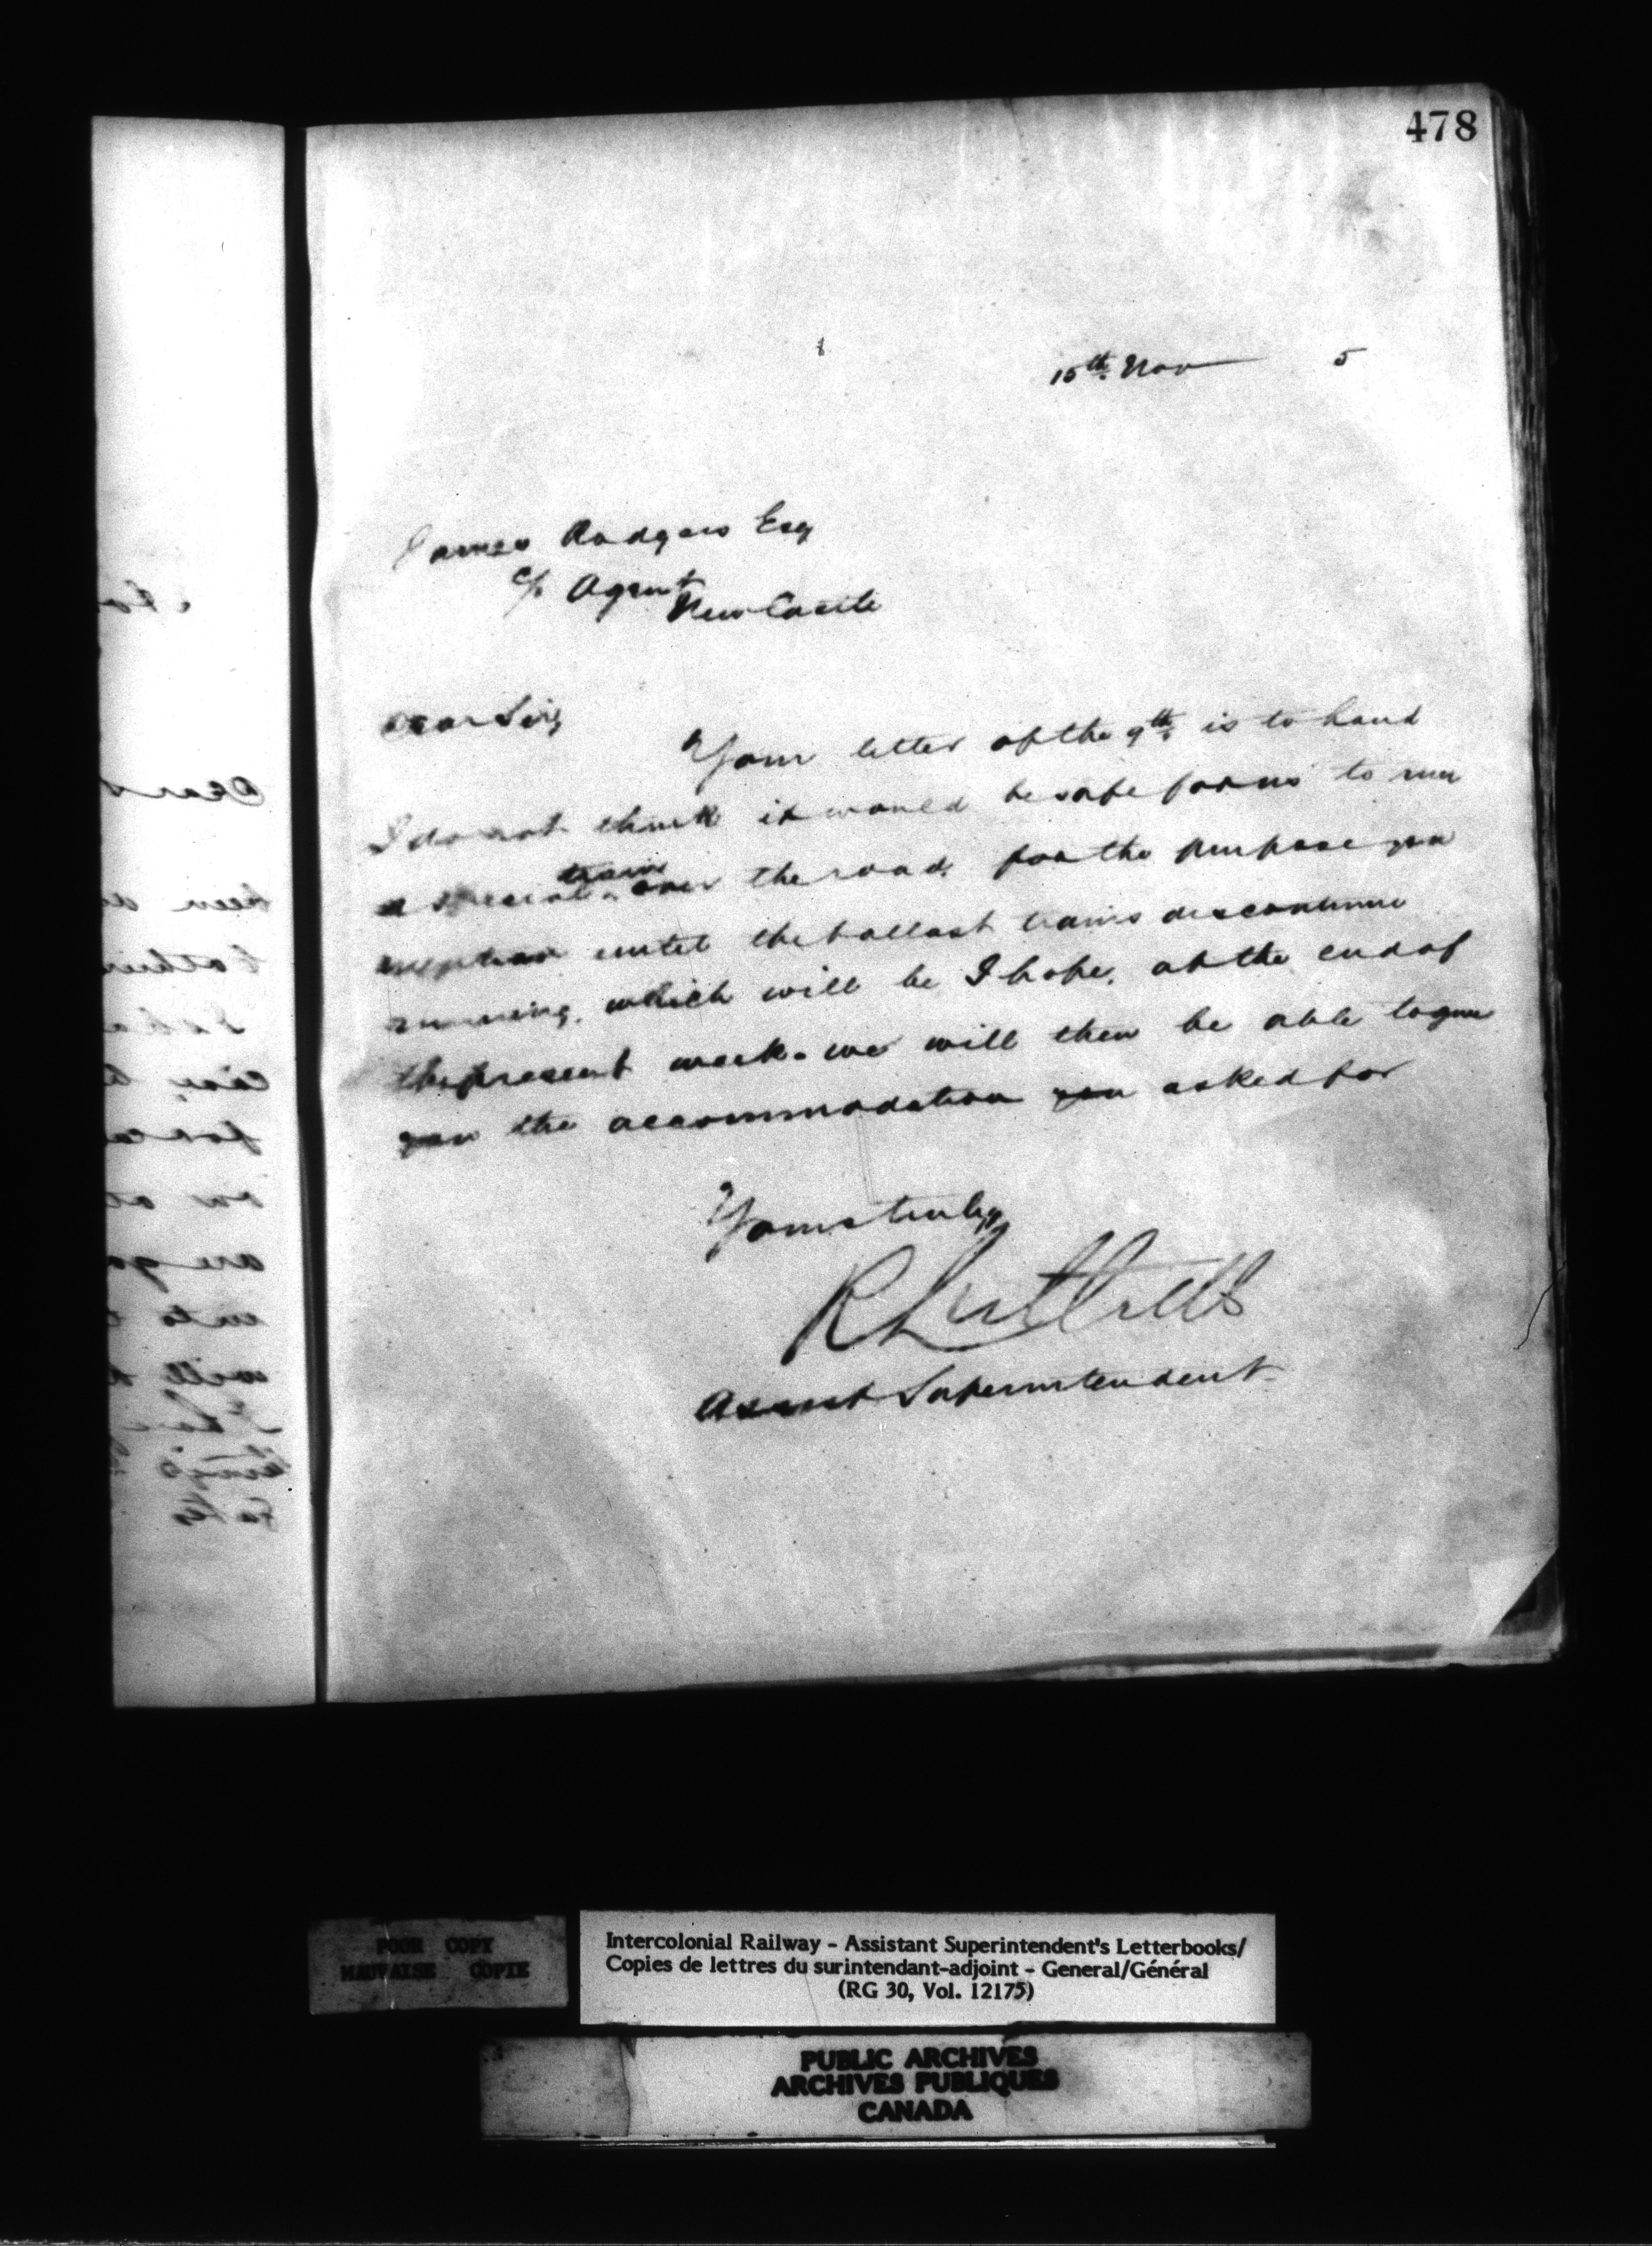 478
15th Nov 5
James Rodgers Esq
c/o Agent
New Castle
Dear Sir,
Your letter of the 9th is to hand
I do not think it would be safe for us to run
a special train over the road, for the purpose you
mention until the ballast trains discontinue
running, which will be I hope, at the end of
the present week. we will then be able to give
you the accommodation you asked for
Yours truly,
R Luttrell
Assist Superintendent
POOR COPY
MAUVAISE COPIE
Intercolonial Railway - Assistant Superintendent's Letterbooks/
Copies de lettres du surintendant-adjoint - General/Général
(RG 30, Vol. 12175)
PUBLIC ARCHIVES
ARCHIVES PUBLIQUES
CANADA